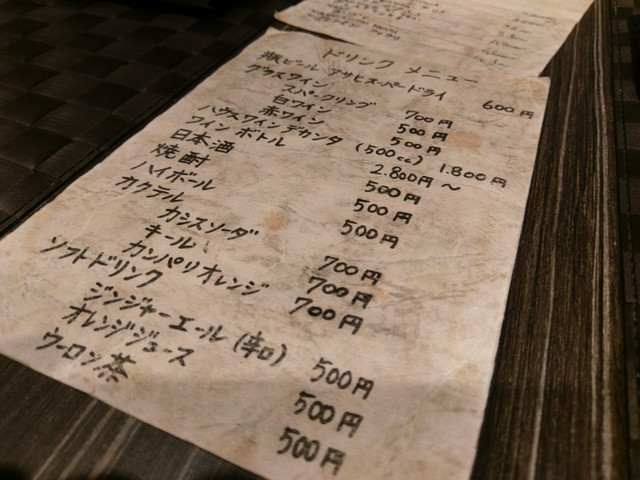 ドリンク メニュー
瓶ビール アサヒスーパードライ 600円
グラスワイン
スパークリング 700円
白ワイン 500円
赤ワイン 500円
ハウスワインデカンタ (500cc) 1.800円
ワイン ボトル 2.800円〜
日本酒 500円
焼酎 500円
ハイボール 500円
カクテル
カシスソーダ 700円
キール 700円
カンパリオレンジ 700円
ソフトドリンク
ジンジャーエール (辛口) 500円
オレンジジュース 500円
ウーロン茶 500円